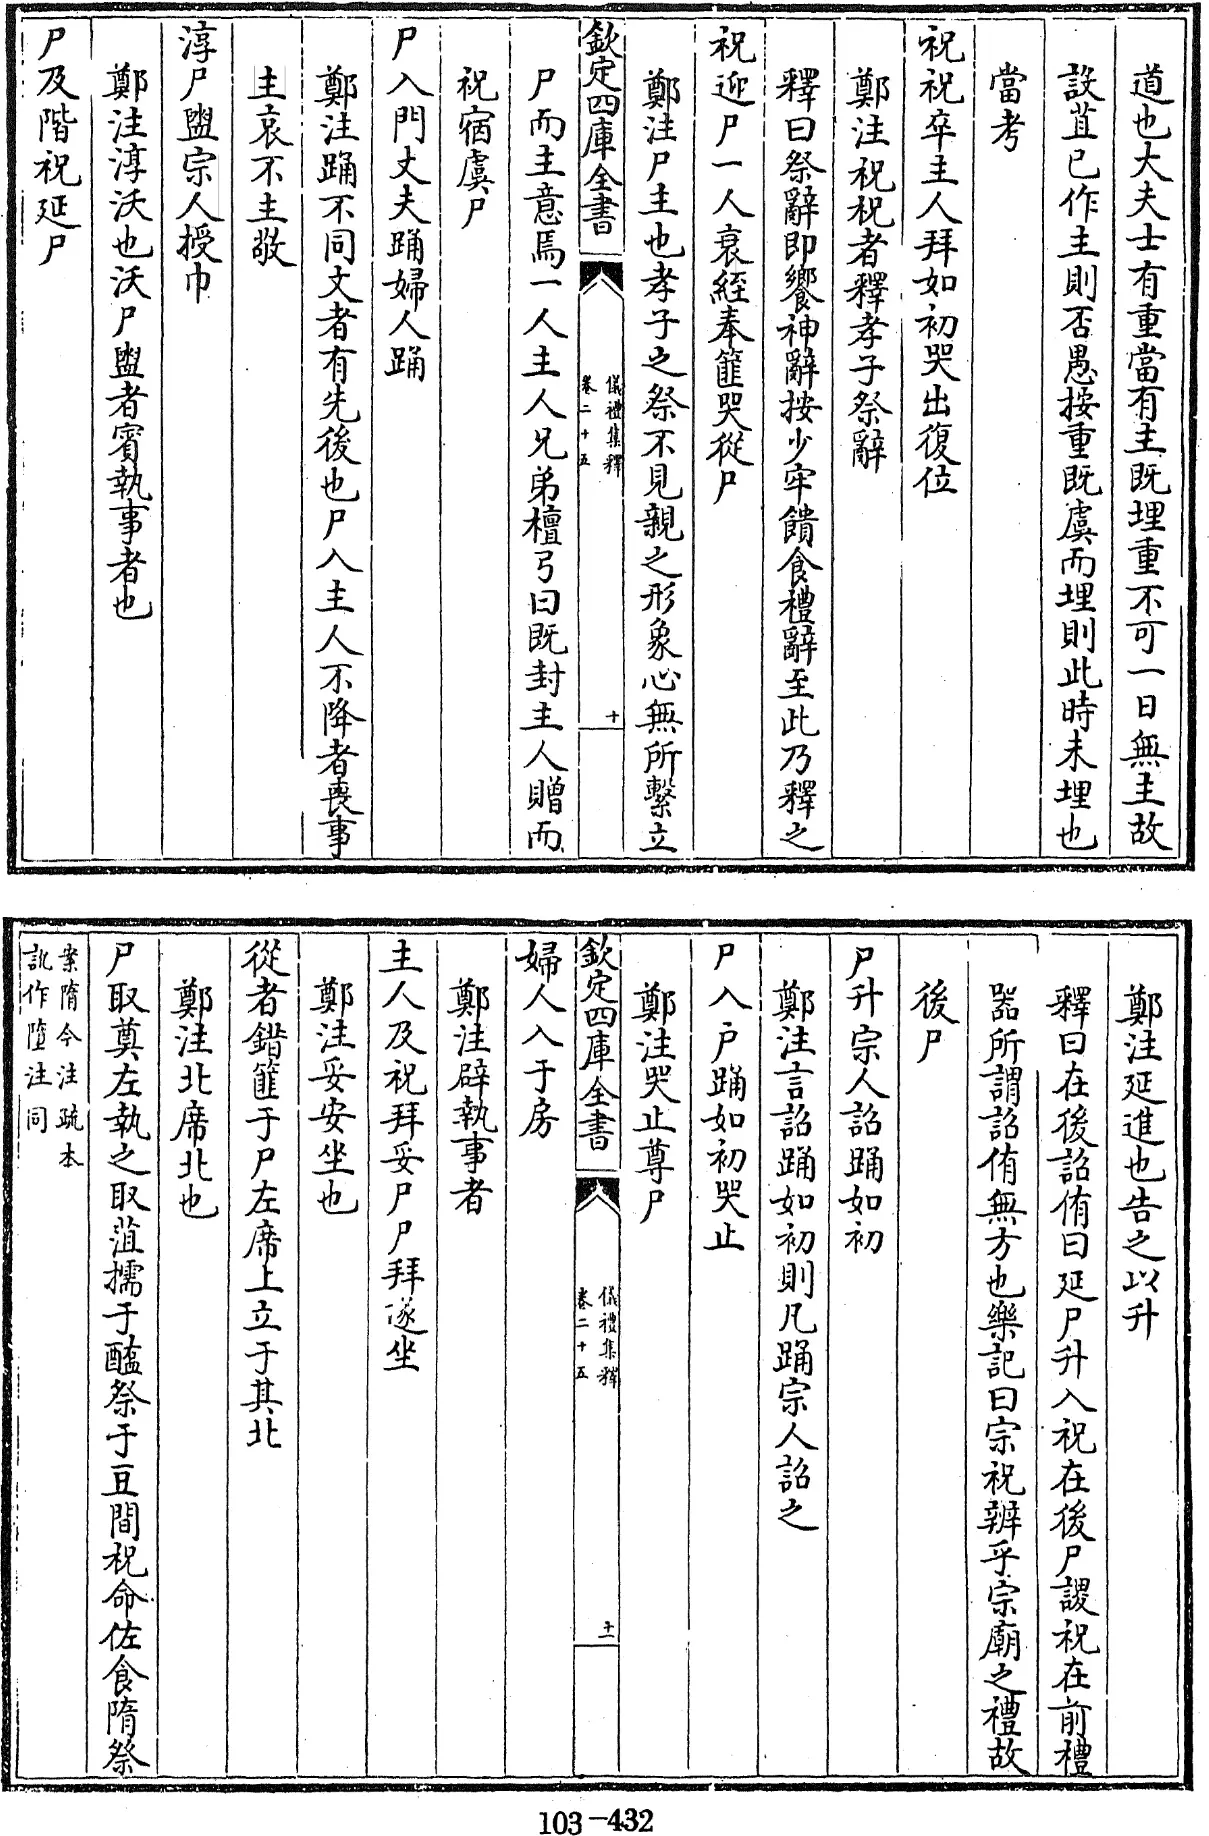 道也大夫士有重當有主既埋重不可一日無主故
設苴已作主則否愚按重既虞而埋則此時未埋也
當考
祝祝卒主人拜如初哭出復位
鄭注祝祝者釋孝子祭辭
釋曰祭辭即饗神辭按少牢饋食禮辭至此乃釋之
祝迎尸一人衰絰奉篚哭從尸
鄭注尸主也孝子之祭不見親之形象心無所繫立
欽定四庫全書
儀禮集釋
卷二十五
十
尸而主意焉一人主人兄弟檀弓曰既封主人贈而
祝宿虞尸
尸入門丈夫踊婦人踊
鄭注踊不同文者有先後也尸入主人不降者喪事
主哀不主敬
淳尸盥宗人授巾
鄭注淳沃也沃尸盥者賓執事者也
尸及階祝延尸
鄭注延進也告之以升
釋曰在後詔侑曰延尸升入祝在後尸謖祝在前禮
器所謂詔侑無方也樂記曰宗祝辨乎宗廟之禮故
後尸
尸升宗人詔踊如初
鄭注言詔踊如初則凡踊宗人詔之
尸入户踊如初哭止
鄭注哭止尊尸
欽定四庫全書
儀禮集釋
卷二十五
十一
婦人入于房
鄭注辟執事者
主人及祝拜妥尸尸拜遂坐
鄭注妥安坐也
從者錯篚于尸左席上立于其北
鄭注北席北也
尸取奠左執之取菹擩于醢祭于豆間祝命佐食隋祭
案隋今注疏本
訛作墮注同
103-432